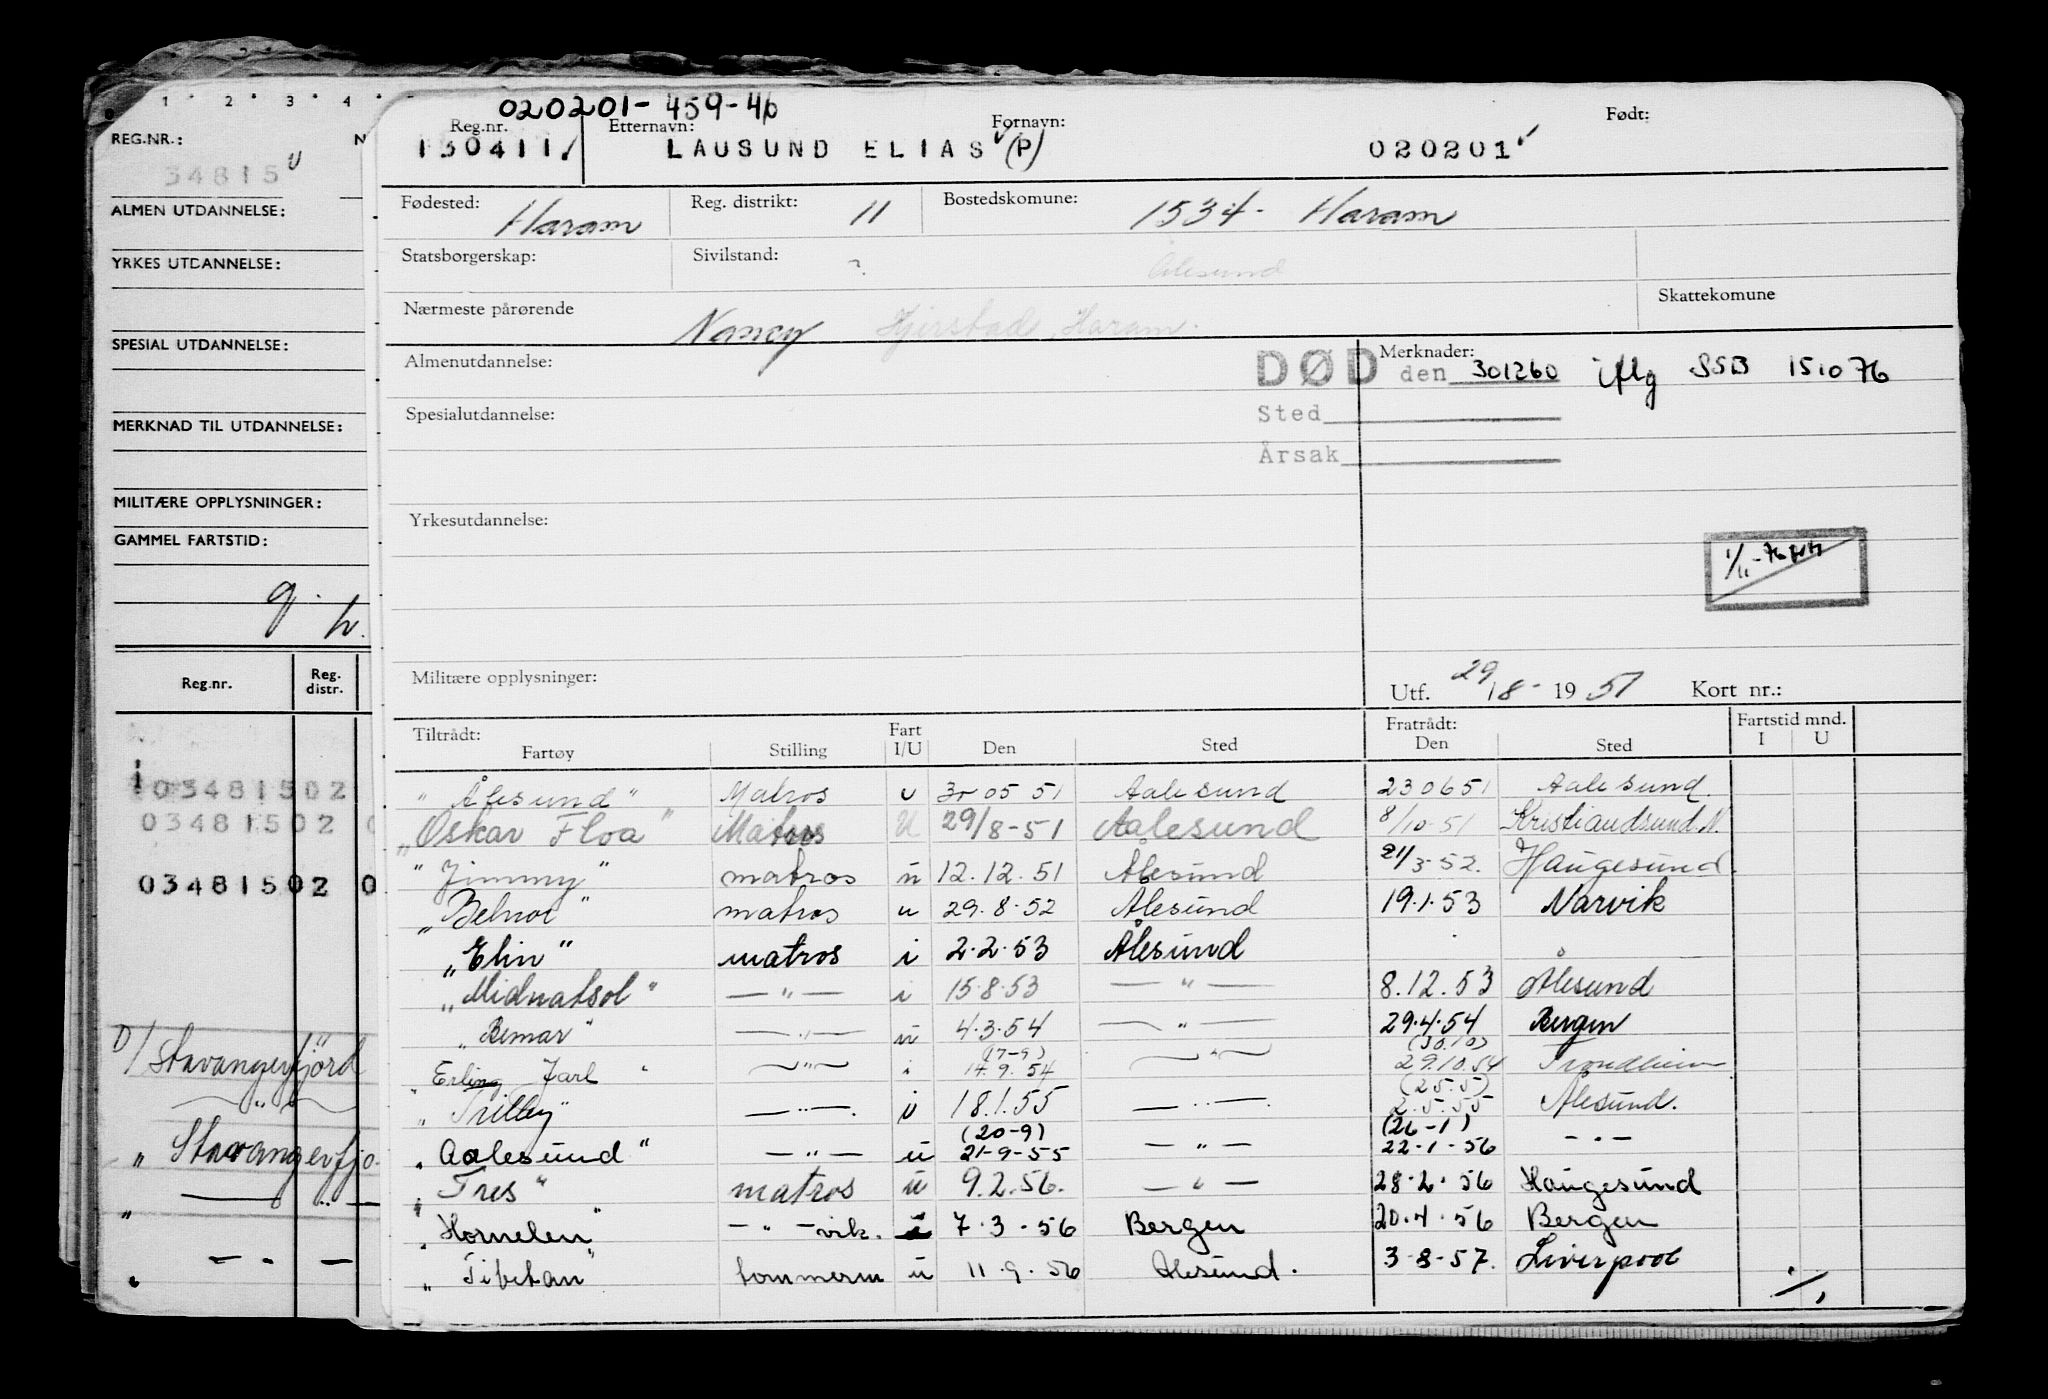 1 2 3 4
REG.NR.: N
34815
ALMEN UTDANNELSE:
YRKES UTDANNELSE:
SPESIAL UTDANNELSE:
MERKNAD TIL UTDANNELSE:
MILITÆRE OPPLYSNINGER:
GAMMEL FARTSTID:
g. h.
Reg.nr. Reg. distr.
103481502
03481502 0
03481502 0
D/ Stavangerfjord
— " —
" Stavangerfjo
" — " —
" — " —
020201-459-46
Reg.nr. Etternavn: Fornavn: Født:
130411 LAUSUND ELIAS (P) 020201
Fødested: Haram Reg. distrikt: 11 Bostedskomune: 1534- Haram
Statsborgerskap: Sivilstand: ? Ålesund
Nærmeste pårørende Nancy Hjerstad, Haram. Skattekomune
Almenutdannelse: Merknader:
DØD den 301260 iflg SSB 151076
Spesialutdannelse: Sted
Årsak
Yrkesutdannelse:
1/11-76
Militære opplysninger: Utf. 29/8-1951 Kort nr.:
Tiltrådt: Fart Fratrådt: Fartstid mnd.
Fartøy Stilling I/U Den Sted Den Sted I U
" Ålesund " Matros u 30 05 51 Aalesund 230651 Aalesund.
" Oskar Floa " Matros U 29/8-51 Aalesund 8/10-51 Kristiandsund.N.
" Jimmy " matros u 12.12.51 Ålesund 21/3-52. Haugesund.
" Belnor " matros u 29.8.52 Ålesund 19.1.53 Narvik
" Elin " matros i 2.2.53 Ålesund
" Midnatsol " — " — i 15.8.53 — " — 8.12.53 Ålesund
" Bemar " — " — u 4.3.54 — " — 29.4.54 Bergen
(17-9) (30.10)
" Erling Jarl " — " — i 14.9.54 — " — 29.10.54 Trondheim
(25.5)
" Trilley " — " —. i 18.1.55 — " —. 2.5.55 Ålesund.
(20-9) (26-1)
" Aalesund " — " — u 21-9-55 — " — 22-1-56 — " —
" Tres " matros u 9.2.56. — " — 28.2.56 Haugesund
" Hornelen " — " —vik. i 7.3.56 Bergen 20.4.56 Bergen
" Tibetan " tømmerm u 11.9.56 Ålesund. 3-8-57. Liverpool